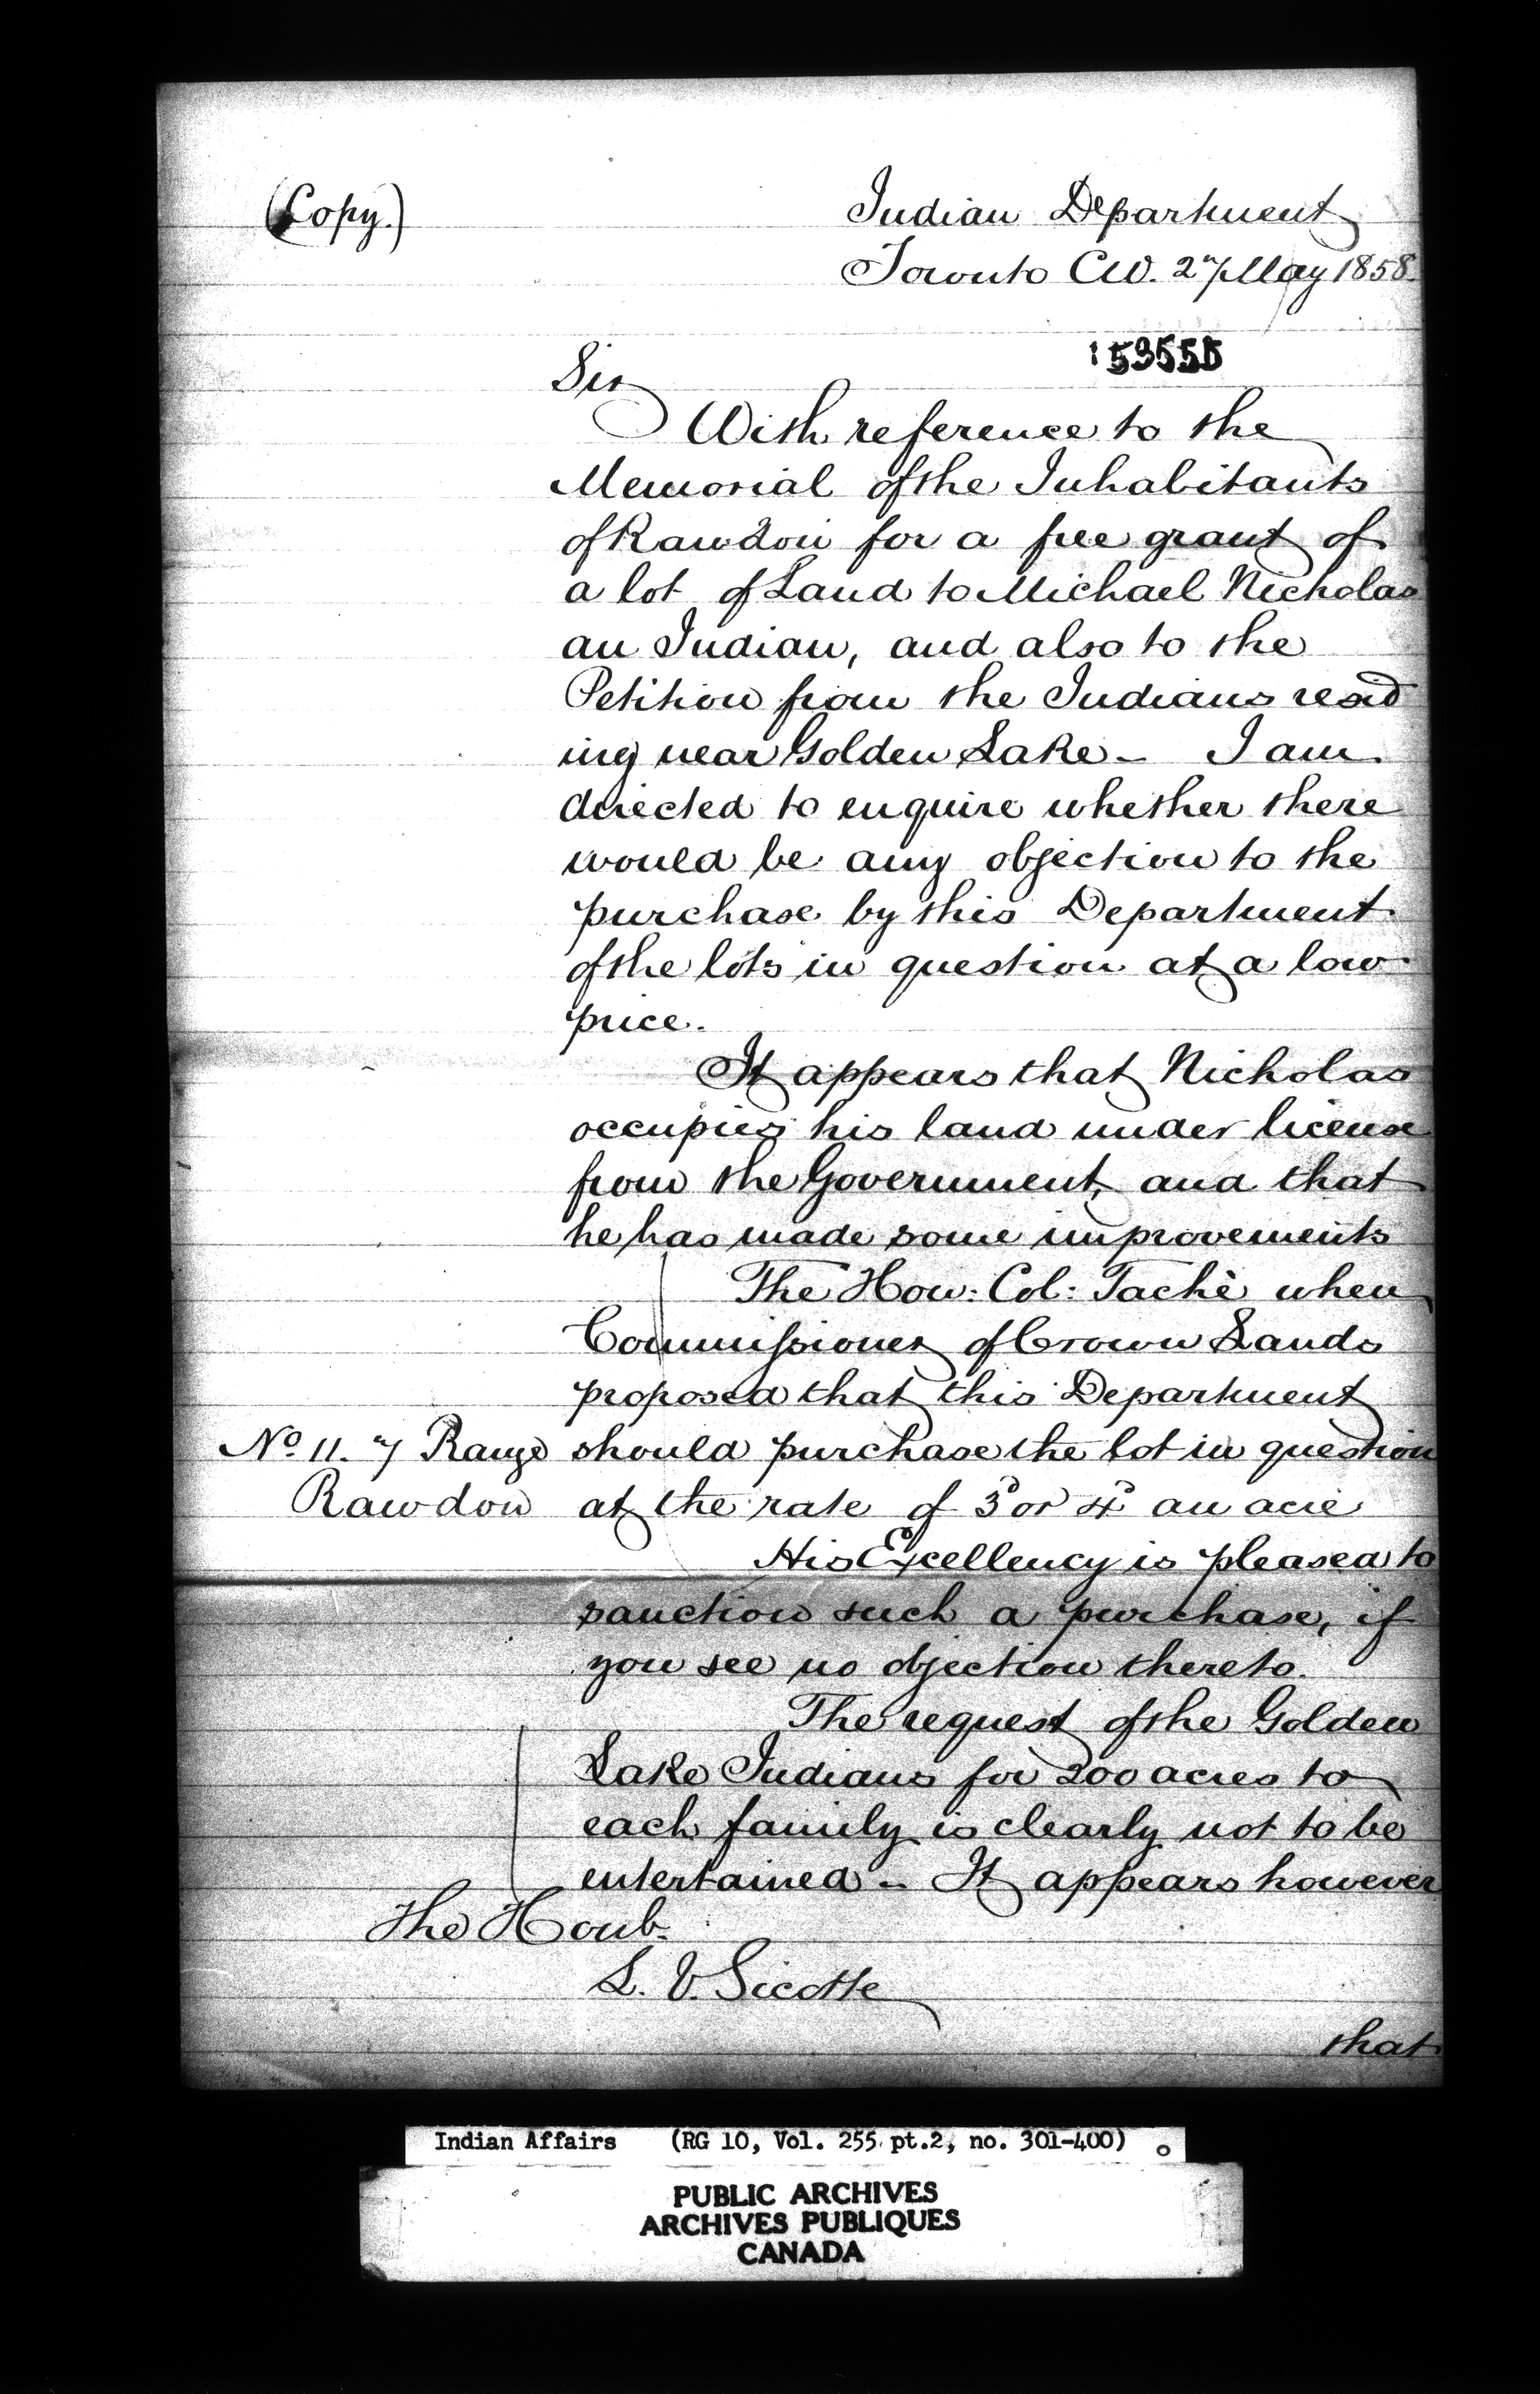 (Copy.)
Indian Department
Toronto CW. 27 May 1858.
Sir
With reference to the
Memorial of the Inhabitants
of Rawdon for a free grant of
a lot of Land to Michael Nicholas
an Indian, and also to the
Petition from the Indians resid
ing near Golden Lake - I am
directed to enquire whether there
would be any objection to the
purchase by this Department
of the lots in question at a low
price.
It appears that Nicholas
occupies his land under license
from the Government, and that
he has made some improvements
The Hon: Col: Taché when
Commissioner of Crown Lands
proposed that this Department
No 11. 7 Range should purchase the lot in question
Rawdon at the rate of 3s or 4s an acre
His Excellency is pleased to
sanction such a purchase, if
you see no objection thereto.
The request of the Golden
Lake Indians for 200 acres to
each family is clearly not to be
entertained - It appears however
The Honb.
L. V. Sicotte
that
Indian Affairs (RG 10, Vol. 255 pt.2, no. 301-400)
PUBLIC ARCHIVES
ARCHIVES PUBLIQUES
CANADA